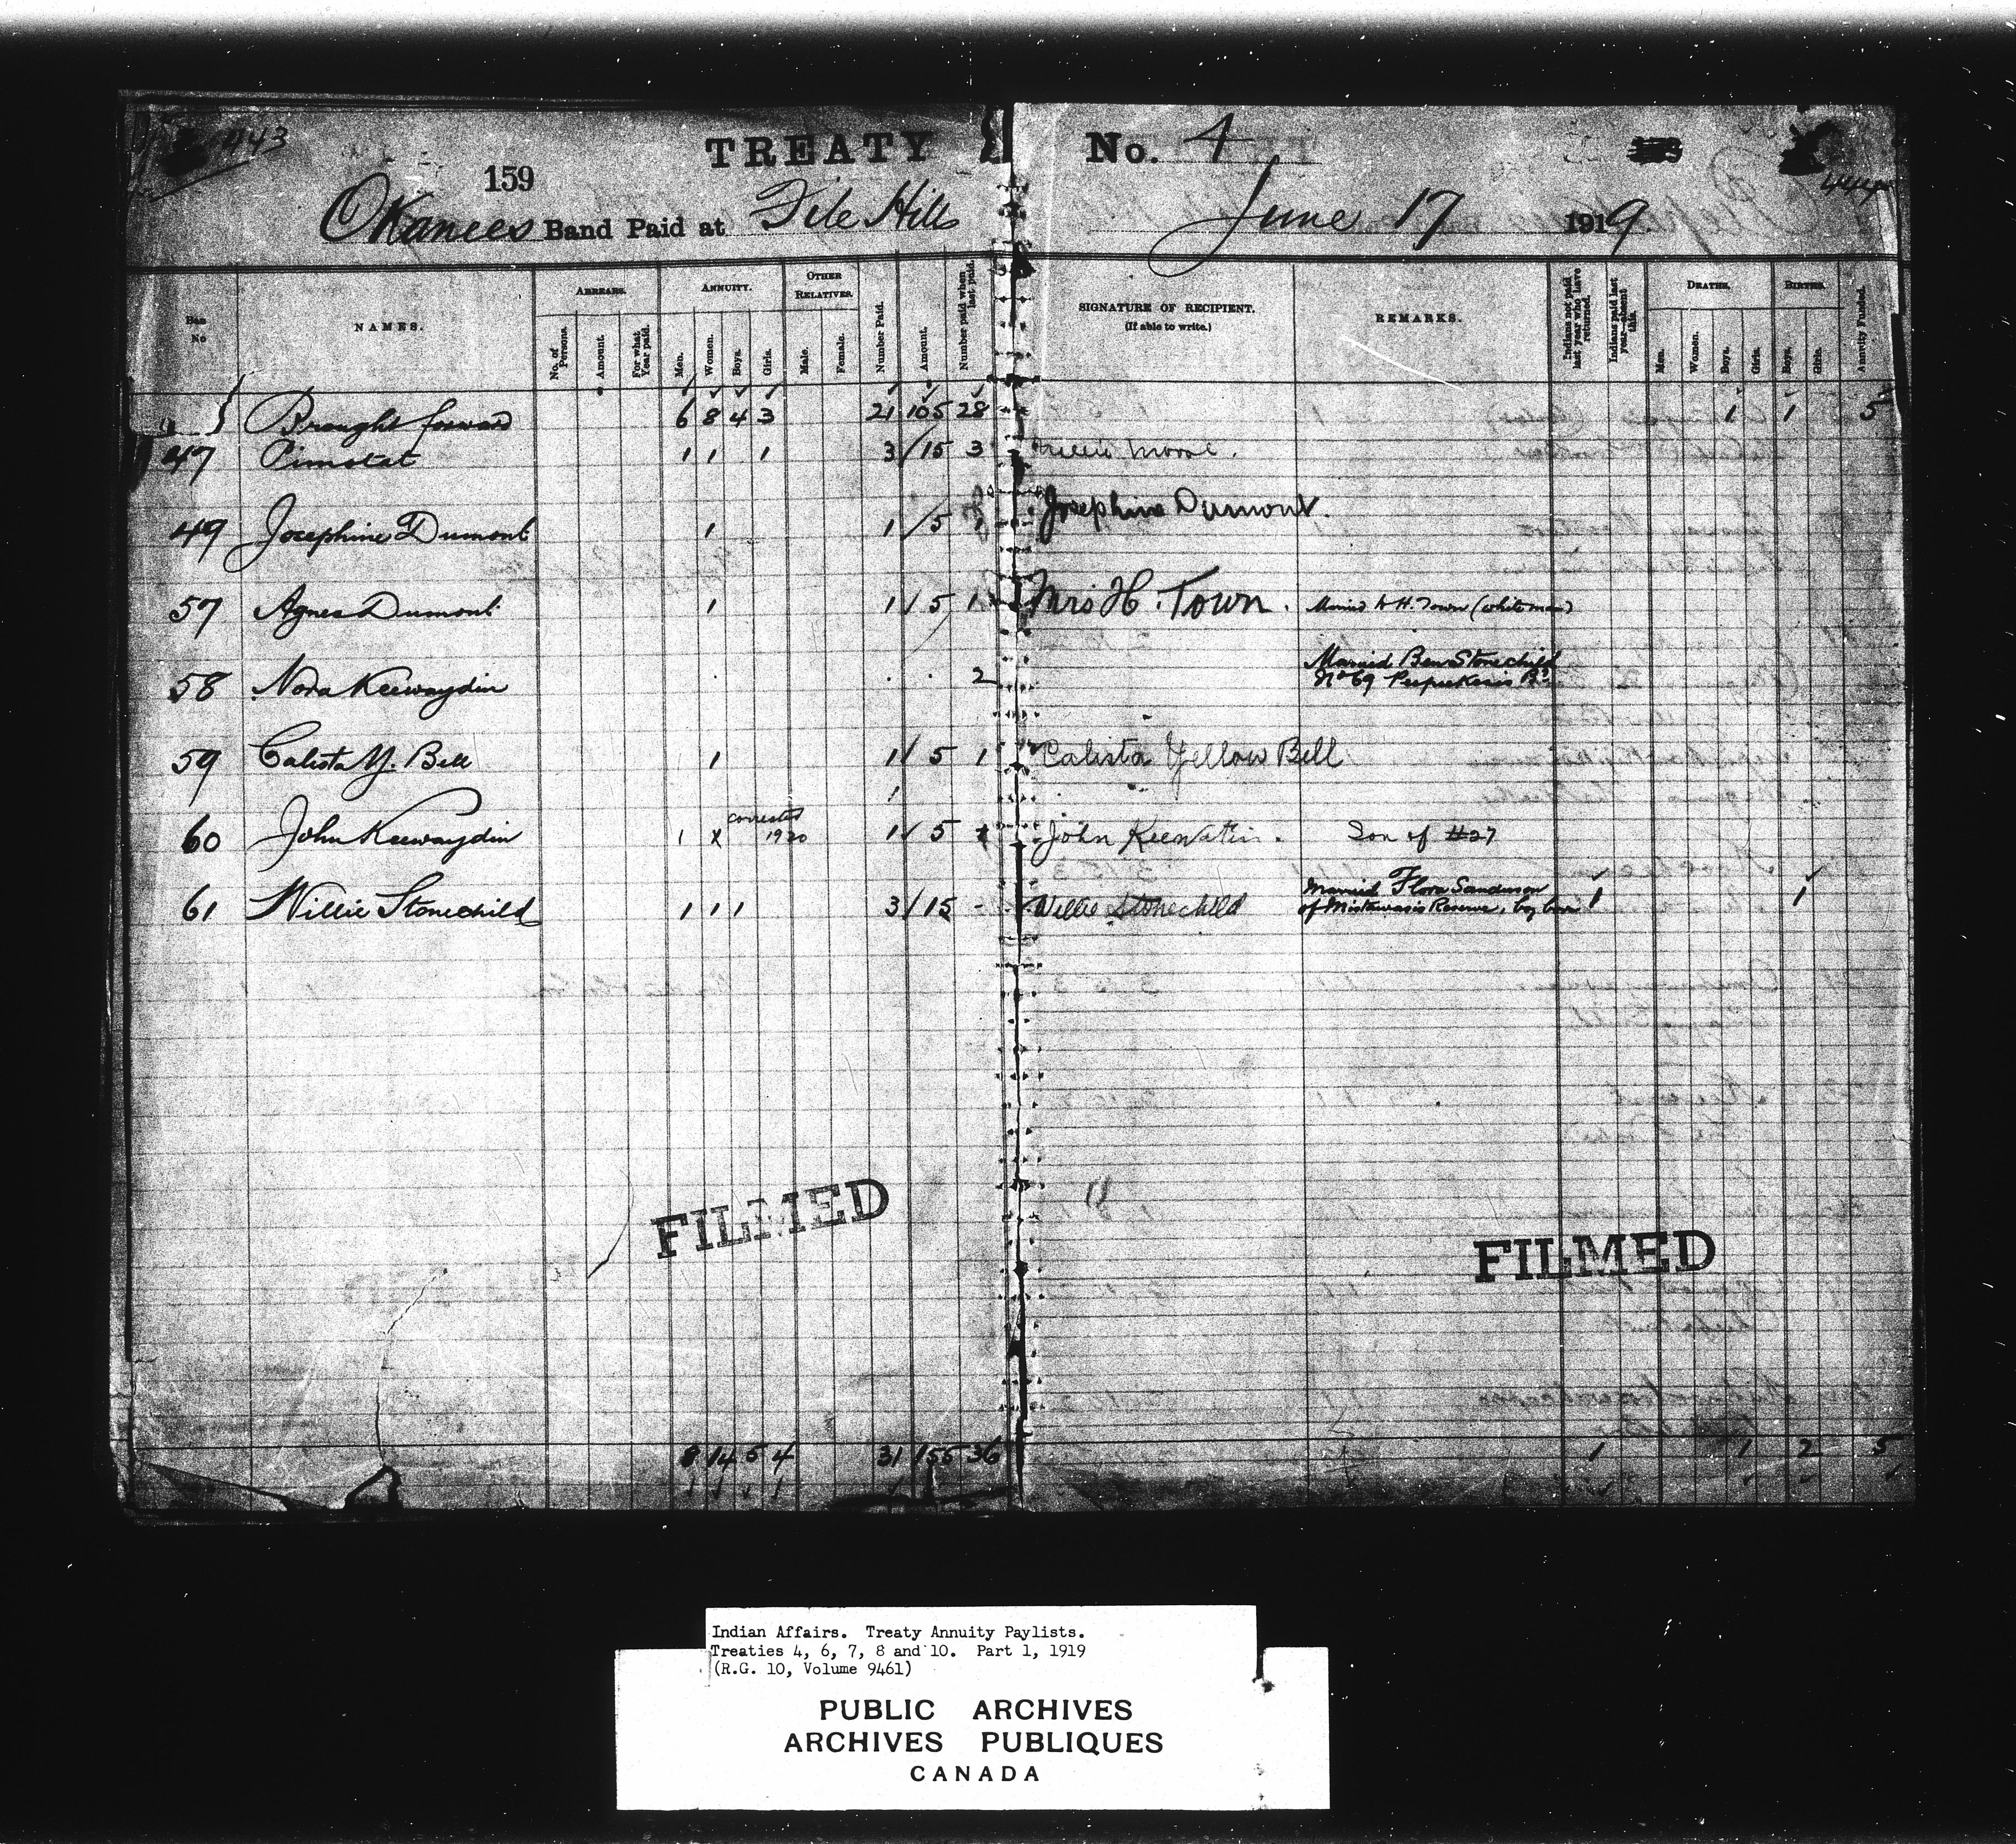 443
159
TREATY No. 4
444
Okanees Band Paid at File Hills June 17 1919.
No
NAMES.
ARREARS.
No. of Persons.
Amount.
For what Year paid.
ANNUITY.
Men.
Women.
Boys.
Girls.
OTHER RELATIVES.
Male.
Female.
Number Paid.
Amount.
Number paid when last paid.
SIGNATURE OF RECIPIENT.
(If able to write.)
REMARKS.
Indians not paid last year who have returned.
Indians paid last year—absent this.
DEATHS.
Men.
Women.
Boys.
Girls.
BIRTHS.
Boys.
Girls.
Annuity Funded.
Brought forward 6 8 4 3 21 105 28 1 1 5
47 Pimotat 1 1 1 3 / 15 3
49 Josephine Dumont 1 1 / 5 1 Josephine Dumont.
57 Agnes Dumont 1 1 / 5 1 Mrs H. Town. Married to H. Town (white man)
58 Nora Keewaydin 2 Married Ben Stonechild
No 69 Peepeekesis Bd
59 Calista Y. Bell 1 1 / 5 1 Calista Yellow Bell
60 John Keewaydin 1 x corrected 1920 1 / 5 John Keewatin. Son of #27
61 Willie Stonechild 1 1 1 3 / 15 - Willie Stonechild Married Flora Sanderson
of Mistawasis Reserve, boy born 1 1
FILMED
FILMED
8 14 5 4 31 155 36 1 1 2 5
Indian Affairs. Treaty Annuity Paylists.
Treaties 4, 6, 7, 8 and 10. Part 1, 1919
(R.G. 10, Volume 9461)
PUBLIC ARCHIVES
ARCHIVES PUBLIQUES
CANADA